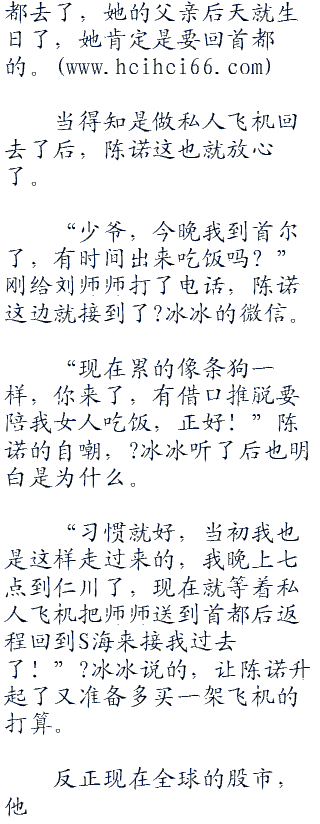 都去了，她的父亲后天就生
日了，她肯定是要回首都
的。(www.hcihci66.com)
当得知是做私人飞机回
去了后，陈诺这也就放心
了。
“少爷，今晚我到首尔
了，有时间出来吃饭吗？”
刚给刘师师打了电话，陈诺
这边就接到了?冰冰的微信。
“现在累的像条狗一
样，你来了，有借口推脱要
陪我女人吃饭，正好！”陈
诺的自嘲，?冰冰听了后也明
白是为什么。
“习惯就好，当初我也
是这样走过来的，我晚上七
点到仁川了，现在就等着私
人飞机把师师送到首都后返
程回到S海来接我过去
了！”?冰冰说的，让陈诺升
起了又准备多买一架飞机的
打算。
反正现在全球的股市，
他